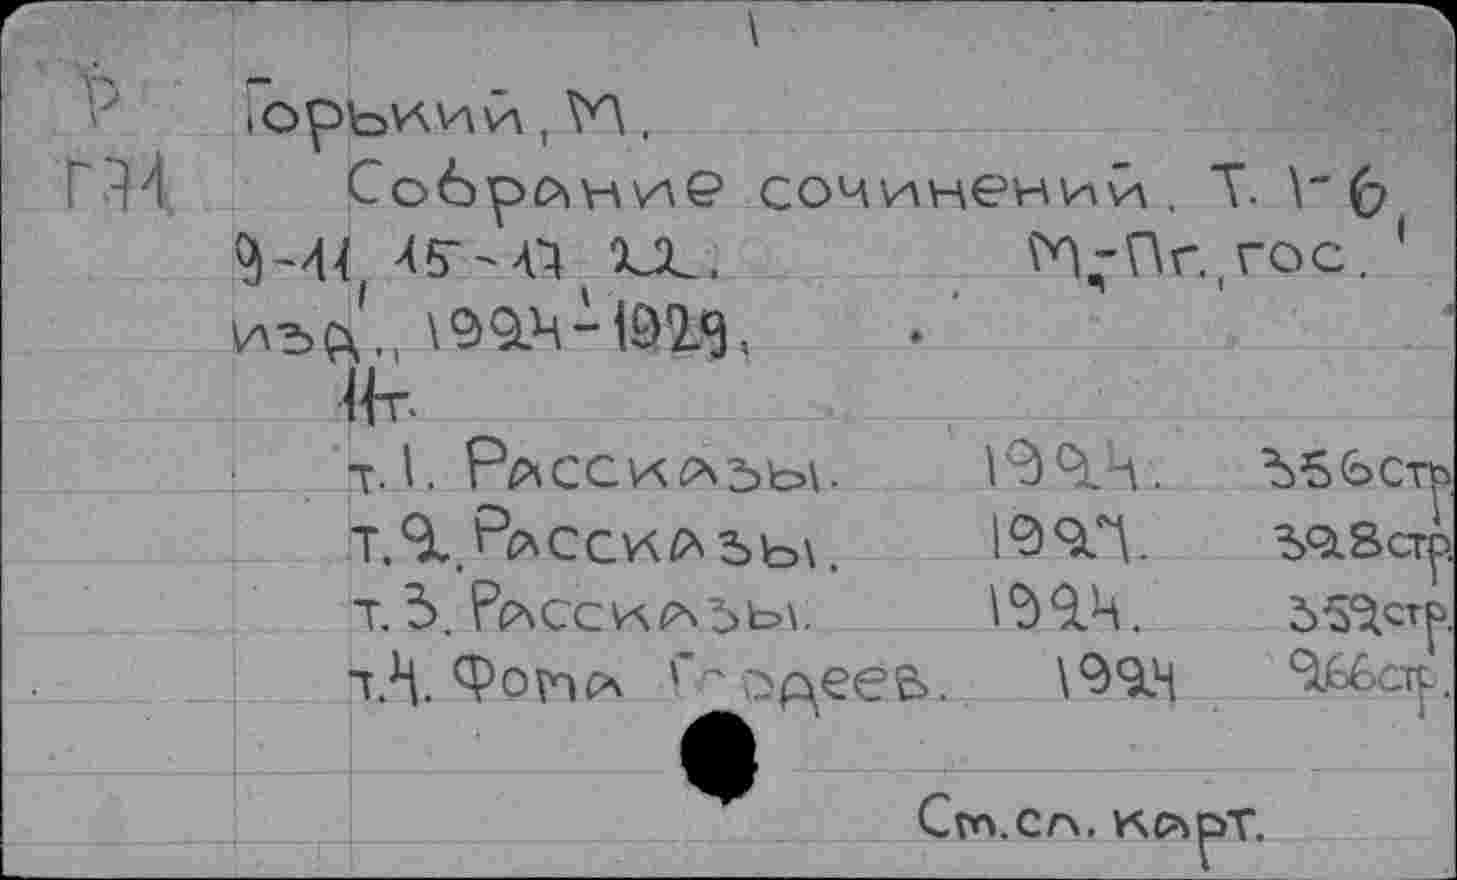 Р
Горький, М.
Г71 Собрание сочинений. Т. 1-6,
9-11, 15-17 М.-Пг., гос.
изд., 1924-1929,
11т.
т.1. Рассказы. 1924. 356стр.
т.2. Рассказы. 1924. 328стр.
т.3. Рассказы. 1924. 352стр.
т.4. Фома Гордеев. 1924 266стр.
См.сл. карт.